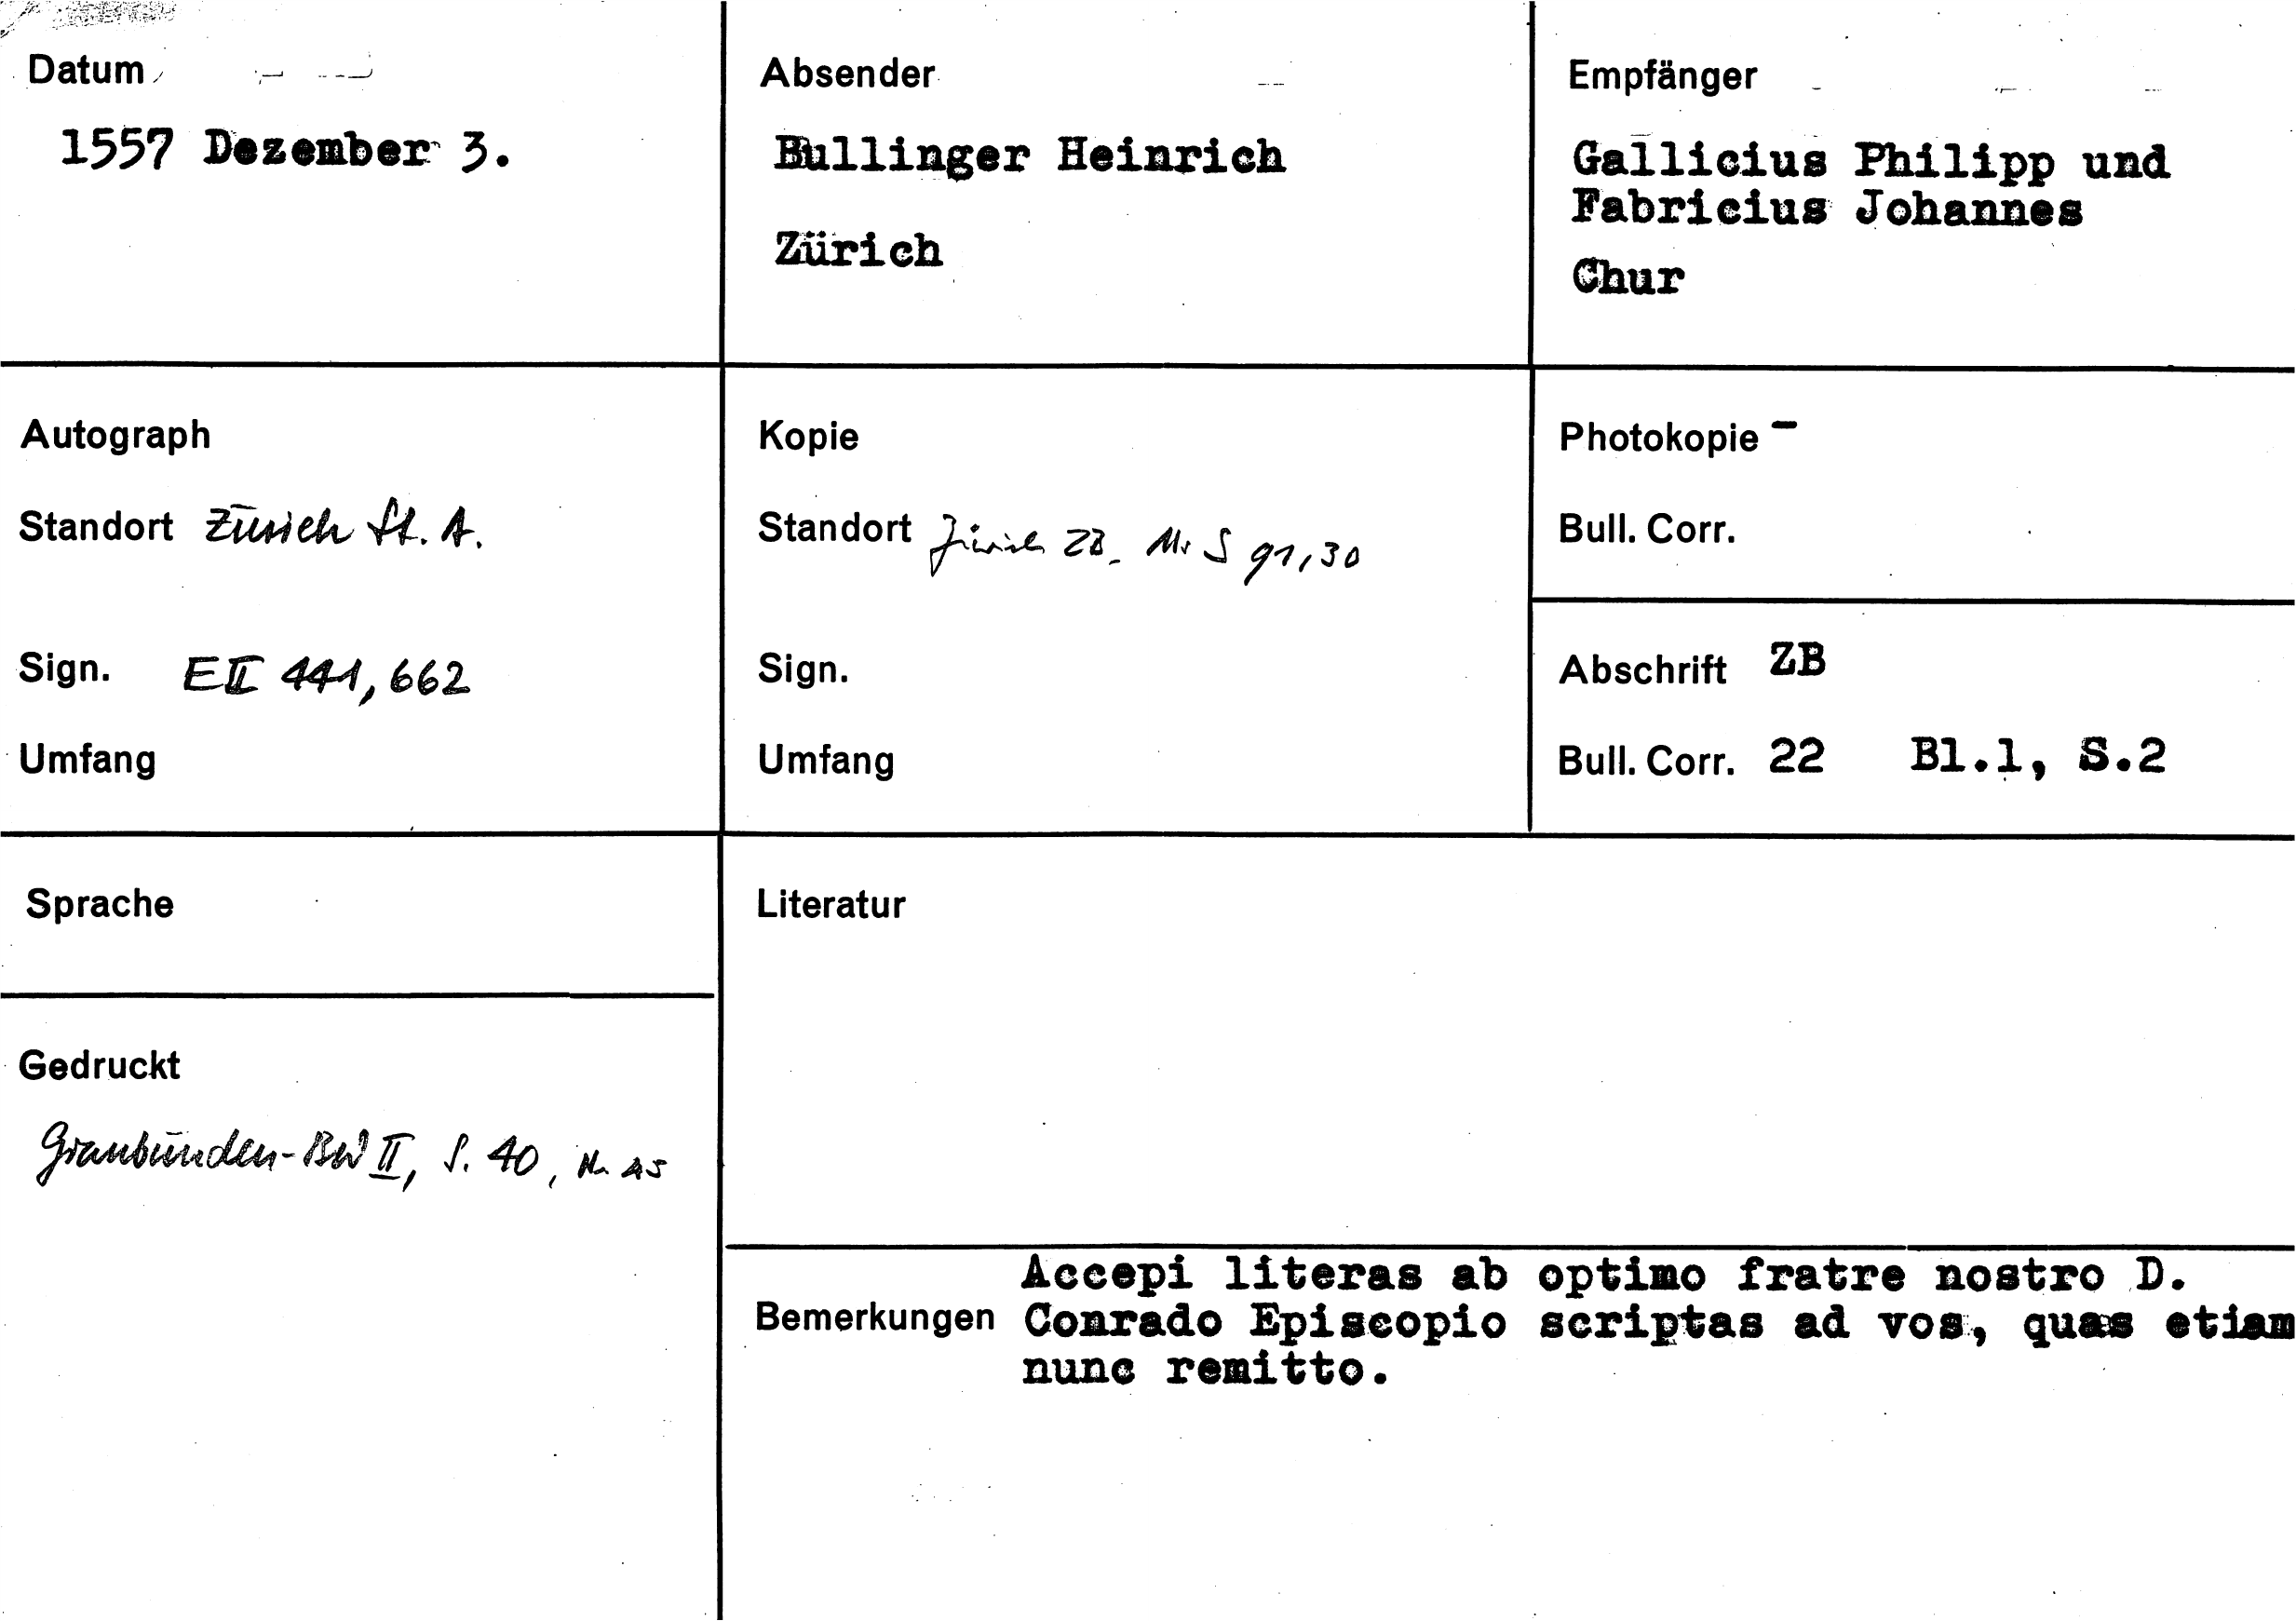 Datum
1557 Dezember 3.
Absender
Bullinger Heinrich
Zürich
Empfänger
Gallicius Philipp und
Fabricius Johannes
Chur
Autograph
Standort Zürich St. A.
Sign. EII 441, 662
Umfang
Kopie
Standort Zürich ZB. Ms S 91, 30
Sign.
Umfang
Photokopie -
Bull. Corr.
Abschrift ZB
Bull. Corr. 22 Bl.1, S.2
Sprache
Gedruckt
Graubünden-BW II, S. 40, Nr. 45
Literatur
Bemerkungen
Accepi literas ab optimo fratre nostro D.
Conrado Episcopio scriptas ad vos, quas etiam
nunc remitto.